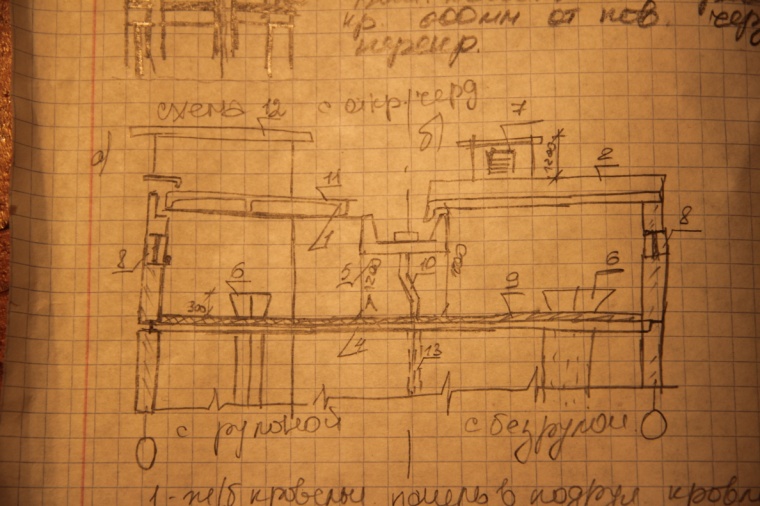 кр 600мм от пов.
перекр.
схема 12 с откр. черд
а) б) 7
1200 2
11
1 8
8 6 5 1200 10 1600 9 6
300
4 13
с рулонной с безрулон.
1 - ж/б кровельн. панель в подрул. кровле